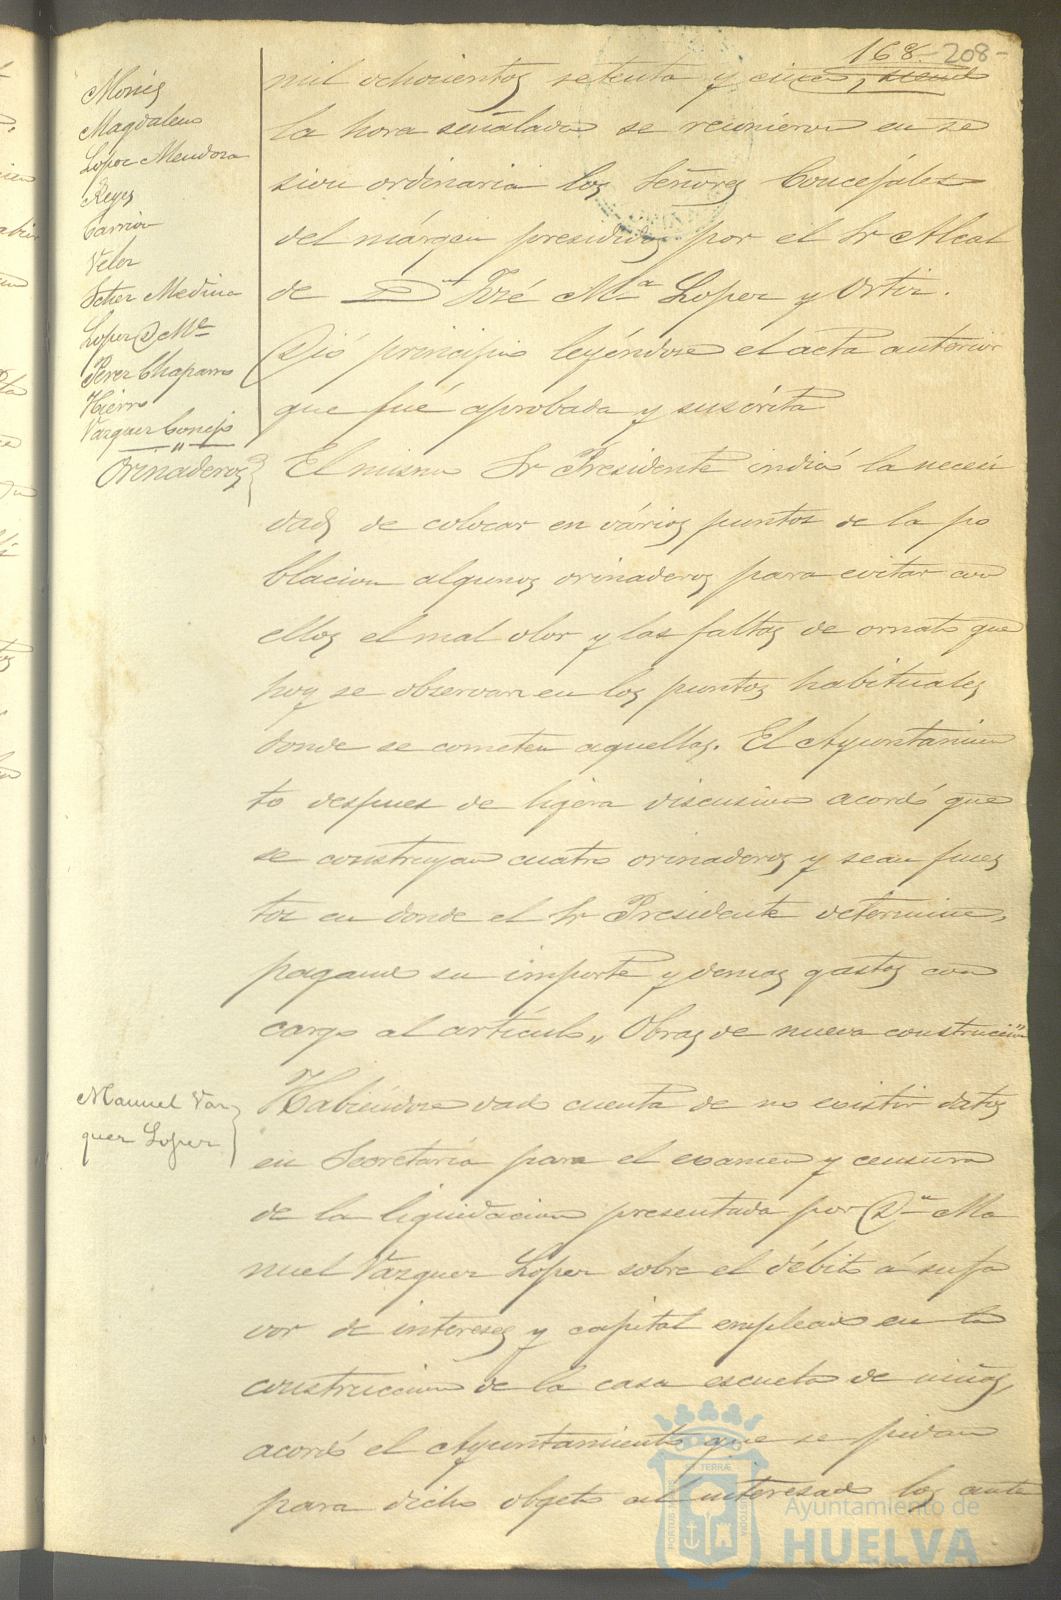 168. - 208 -
Monis
Magdaleno
Lopez Mendoza
Reyes
Carrion
Velez
Scher Medina
Lopez D. Me
Perez Chaparro
Hierro
Vazquez Conejo
mil ochocientos setenta y cinco,
la hora señalada se reunieron en se
sion ordinaria los Señores Concejales
del márgen presididos por el Sr Alcal
de Dn José Ma Lopez y Ortiz.
Dió principio leyéndose el acta anterior
que fué aprobada y suscrita
Orinaderos
El mismo Sr Presidente indicó la necesi
dad de colocar en vários puntos de la po
blacion algunos orinaderos para evitar con
ellos el mal olor y las faltas de ornato que
hoy se observan en los puntos habituales
donde se cometen aquellas. El Ayuntamien
to despues de ligera discusion acordó que
se construyan cuatro orinaderos y sean pues
tos en donde el Sr Presidente determine,
pagando su importe y demas gastos con
cargo al artículo " Obras de nueva construccion"
Manuel Vaz
quez Lopez
Habiéndose dado cuenta de no existir datos
en Secretaría para el examen y censura
de la liquidacion presentada por Dn Ma
nuel Vazquez Lopez sobre el débito á su fa
vor de intereses y capital empleado en la
construccion de la casa escuela de niñas,
acordó el Ayuntamiento que se pidan
para dicho objeto al interesado los ante
PORTUS MARIS ET TERRÆ CUSTODIA
Ayuntamiento de
HUELVA